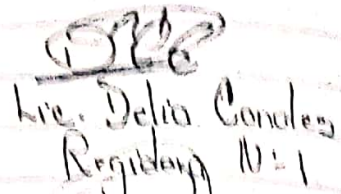 Lic. Delia Canales
Regidora N: 1